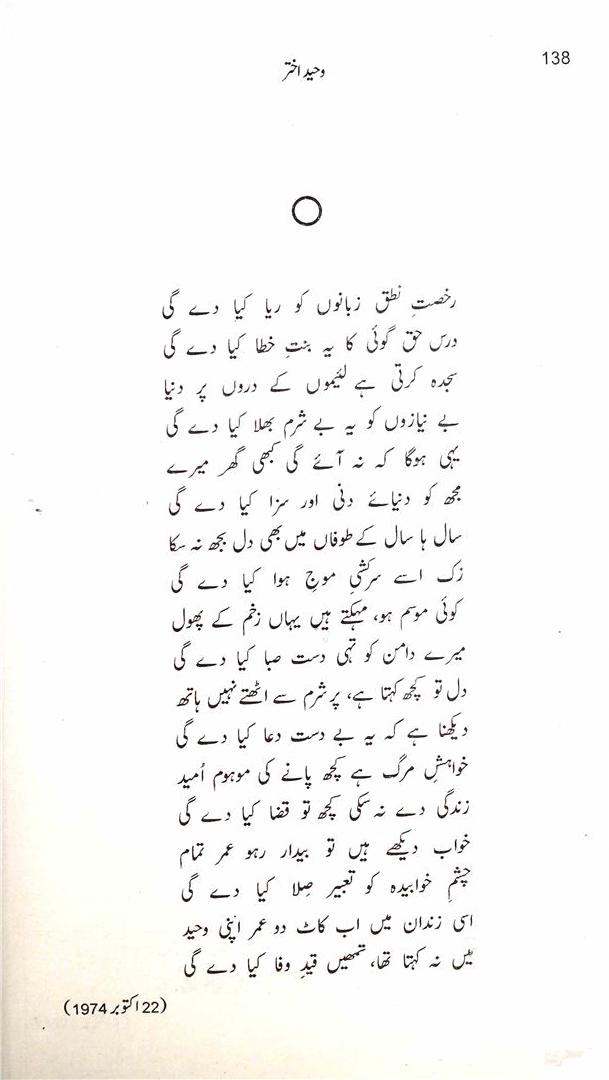 138
وحید اختر
رخصتِ نطق زبانوں کو ریا کیا دے گی
درس حق گوئی کا یہ بنتِ خطا کیا دے گی
سجدہ کرتی ہے لئیموں کے دروں پر دنیا
بے نیازوں کو یہ بے شرم بھلا کیا دے گی
یہی ہوگا کہ نہ آئے گی کبھی گھر میرے
مجھ کو دنیائے دنی اور سزا کیا دے گی
سال ہا سال کے طوفاں میں بھی دل بجھ نہ سکا
زک اسے سرکشیِ موجِ ہوا کیا دے گی
کوئی موسم ہو، مہکتے ہیں یہاں زخم کے پھول
میرے دامن کو تہی دست صبا کیا دے گی
دل تو کچھ کہتا ہے، پر شرم سے اٹھتے نہیں ہاتھ
دیکھنا ہے کہ یہ بے دست دعا کیا دے گی
خواہشِ مرگ ہے کچھ پانے کی موہوم اُمید
زندگی دے نہ سکی کچھ تو قضا کیا دے گی
خواب دیکھے ہیں تو بیدار رہو عمر تمام
چشمِ خوابیدہ کو تعبیر صِلا کیا دے گی
اسی زندان میں اب کاٹ دو عمر اپنی وحید
میں نہ کہتا تھا، تمھیں قیدِ وفا کیا دے گی
(22 اکتوبر 1974)